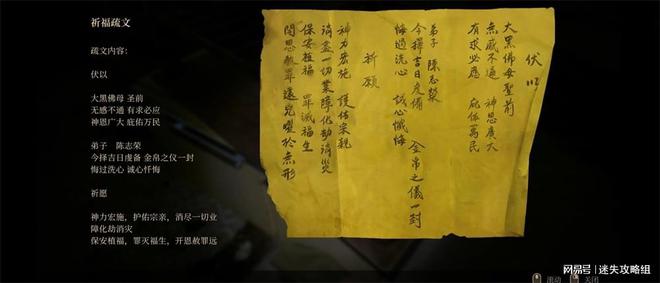 祈福疏文
疏文内容:
伏以
大黑佛母 圣前
无感不通 有求必应
神恩广大 庇佑万民
弟子 陈志荣
今择吉日虔备 金帛之仪一封
悔过洗心 诚心忏悔
祈愿
神力宏施，护佑宗亲，消尽一切业
障化劫消灾
保安植福，罪灭福生，开恩赦罪远
伏以
大黑佛母聖前
無感不通 神恩廣大
有求必應 庇佑萬民
弟子 陳志榮
今擇吉日虔備 金帛之儀一封
悔過洗心 誠心懺悔
祈願
神力宏施 護佑宗親
消盡一切業障化劫消災
保安植福 罪滅福生
開恩赦罪遠兇曜於無形
滚动 关闭
网易号 | 迷失攻略组